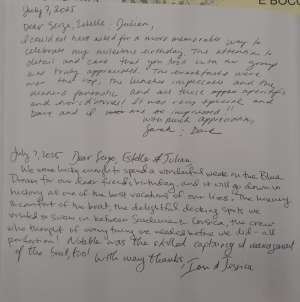 E BOCC
July 7, 2025
Dear Serge, Estelle & Julien,
I could not have asked for a more memorable way to
celebrate my milestone birthday. The attention to
detail and care that you took with our group
was truly appreciated. The breakfasts were
over the top, the lunches impeccable and the
dinners fantastic and all those appero aperitifs
and hors d'oeuvres! It was very special and
Dave and I are so impressed
with much appreciation,
Sarah & Dave
July 7, 2025 Dear Serge, Estelle & Julian
We were lucky enough to spend a wonderful week on the Blue
Dream for our dear friend's birthday, and it will go down in
history as one of the best vacations of our lives. The luxury
& comfort of the boat, the delightful docking spots we
visited to swim in between Sardinia & Corsica, the crew
who thought of everything we needed before we did - all
perfection! Notable was the skilled captaining & management
of the boat, too! With many thanks,
Ian & Jessica